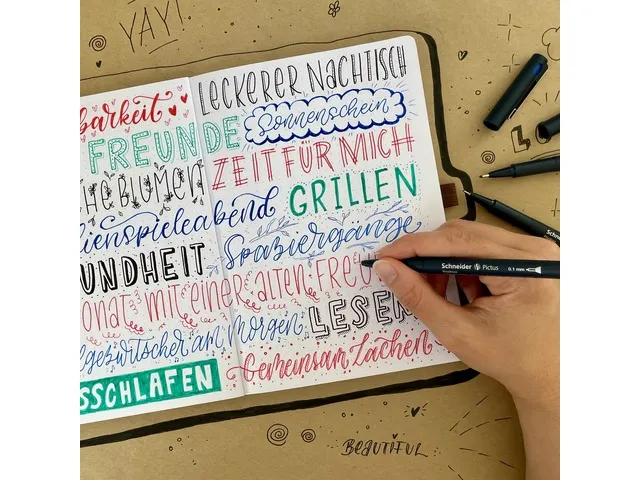 YAY!
LECKERER NACHTISCH
barkeit
FREUNDE
Sonnenschein
HE BLUMEN
ZEIT FÜR MICH
ienspieleabend
GRILLEN
UNDHEIT
Spaziergänge
onat mit einer alten FREU
gezwitscher am Morgen
LESEN
SSCHLAFEN
Gemeinsam Lachen
Schneider Pictus 0.1 mm
BEAUTIFUL